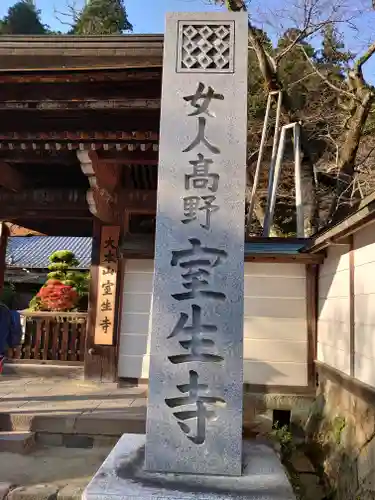 女人高野室生寺
大本山室生寺